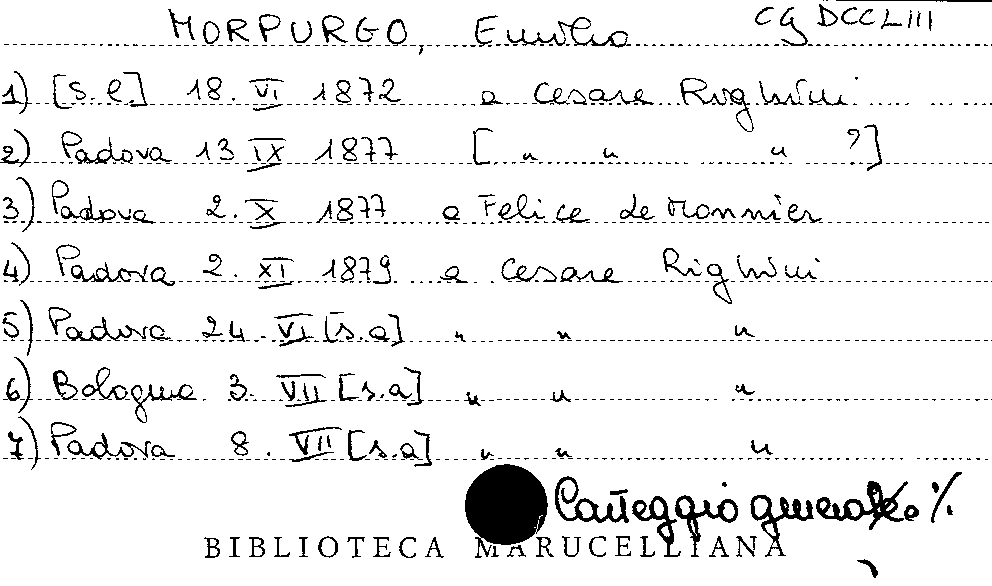 MORPURGO, Emilio CG DCCLIII
1) [s.l.] 18. VI 1872 a Cesare Righini
2) Padova 13 IX 1877 [ " " " ?]
3) Padova 2. X 1877 a Felice Le Monnier
4) Padova 2. XI 1879 a Cesare Righini
5) Padova 24. VI [s.a] " " "
6) Bologna 3. VII [s.a] " " "
7) Padova 8. VII [s.a] " " "
Carteggio generale ./.
BIBLIOTECA MARUCELLIANA